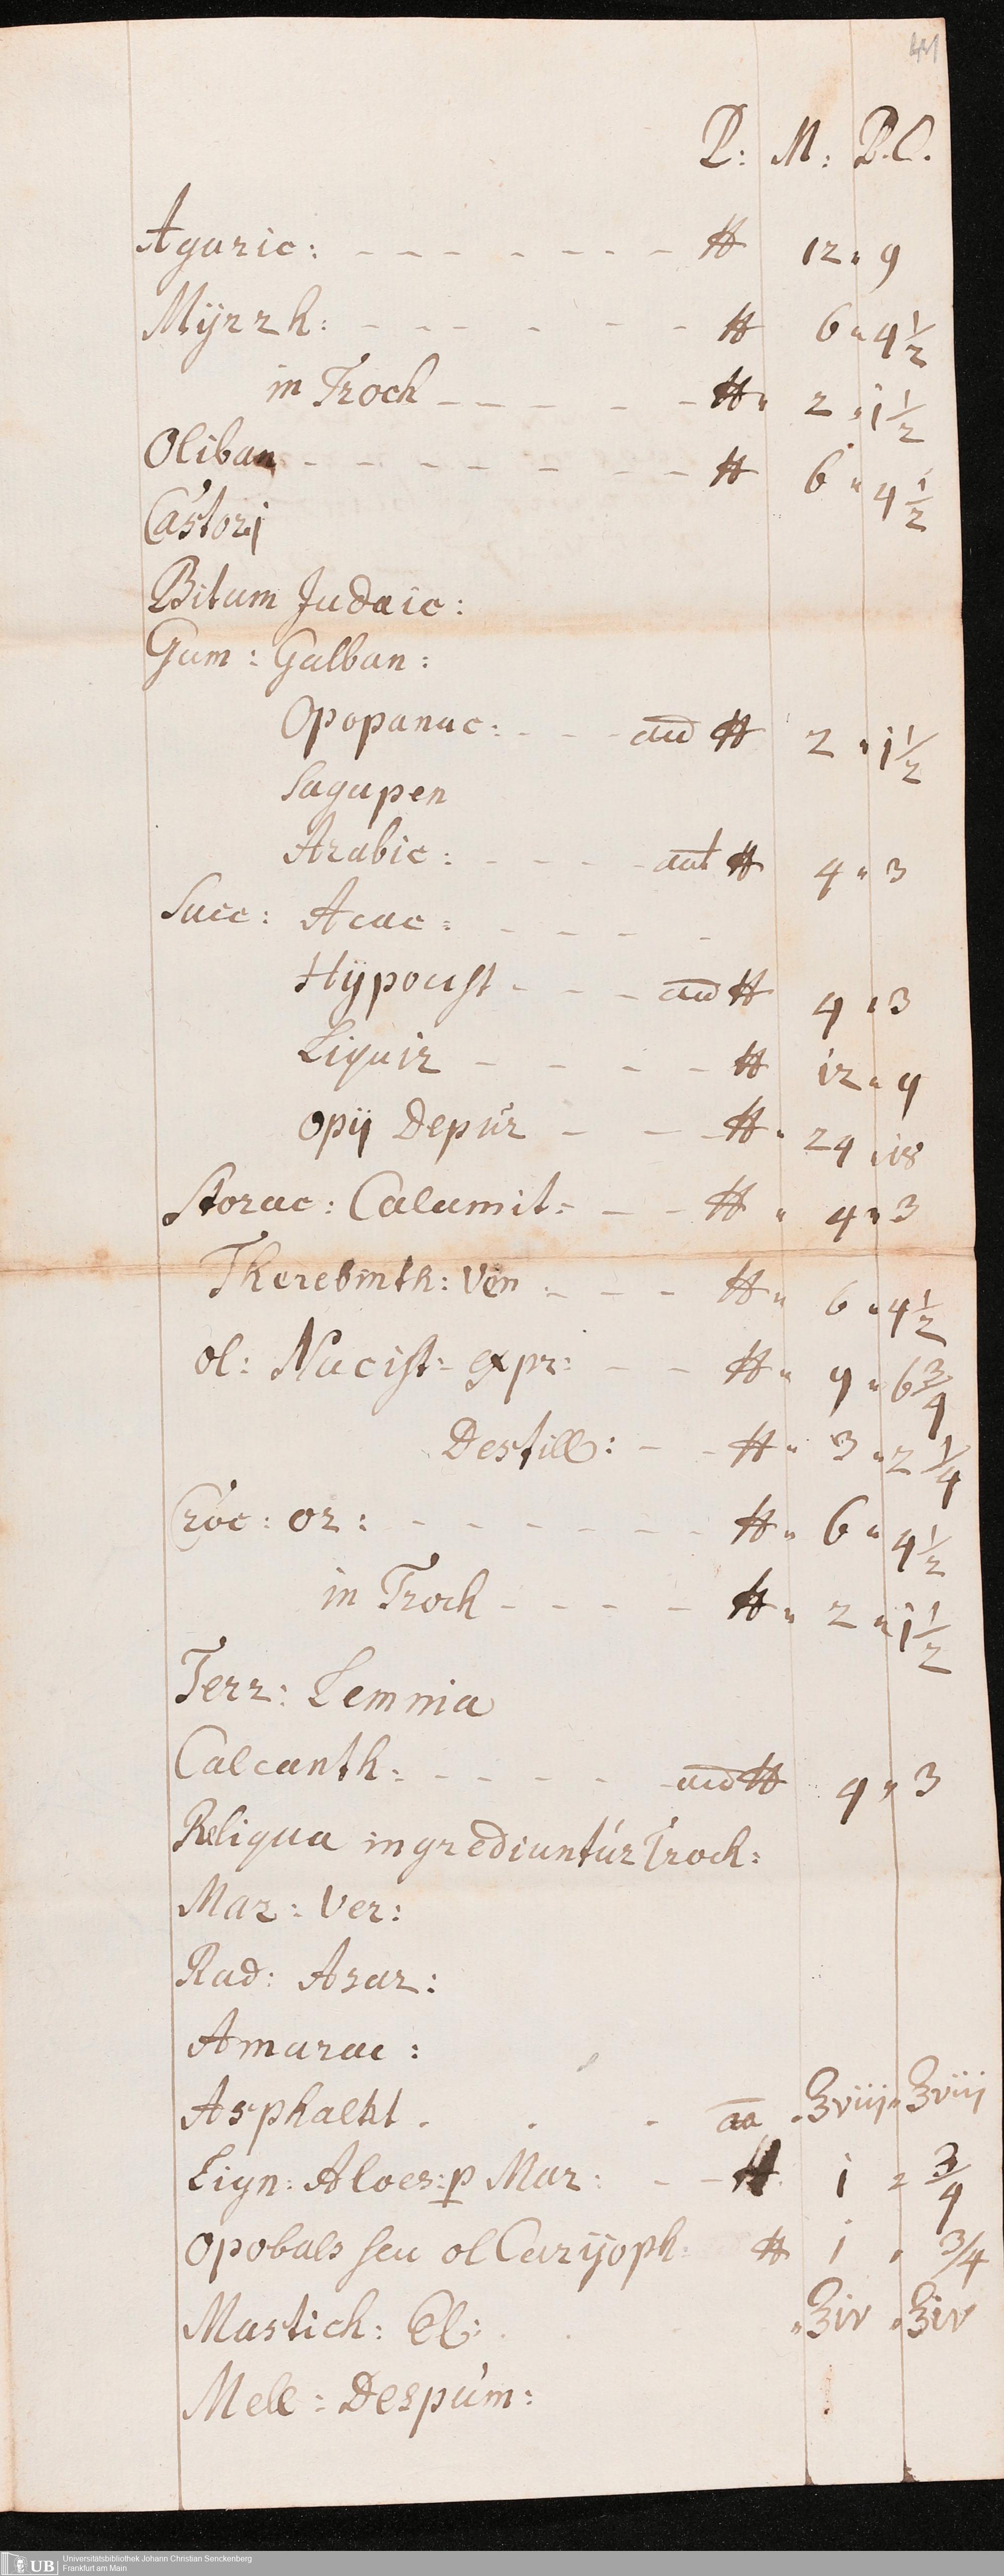 P: M: P.C.
Agaric: - - - - - - - ℔ 12 " 9
Mÿrrh: - - - - - - ℔ 6 " 4 1/2
in Troch - - - - - ℔ " 2 " 1 1/2
Oliban - - - - - - - ℔ 6 " 4 1/2
Castorj
Bitum Judaic:
Gum: Galban:
Opopanac: - - - aā ℔ 2 " 1 1/2
Sagapen
Arabic: - - - - aā ℔ 4 " 3
Succ: Acac: - - - -
Hÿpocist - - - aā ℔ 4 " 3
Liquir - - - - ℔ 12 " 9
opij Depúr - - - ℔ " 24 " 18
Storac: Calamit: - - ℔ " 4 " 3
Therebinth: Ven: - - - ℔ " 6 " 4 1/2
ol: Nucist: expr: - - ℔ " 9 " 6 3/4
Destill: - - ℔ " 3 " 2 1/4
Croc: or: - - - - - - ℔ " 6 " 4 1/2
in Troch - - - - ℔ " 2 " 1 1/2
Terr: Lemnia
Calcanth: - - - - - aā ℔ 4 " 3
Reliqua ingrediuntúr Troch:
Mar: Ver:
Rad: Asar:
Amarac:
Asphalht . . . aā " ʒviij " ʒviij
Lign: Aloes: p Mar: - - ℔ 1 " 3/4
opobals seu ol Carÿoph: ℔ 1 " 3/4
Mastich: El: . . " ʒiv " ʒiv
Mell: Despúm:
UB Universitätsbibliothek Johann Christian Senckenberg
Frankfurt am Main